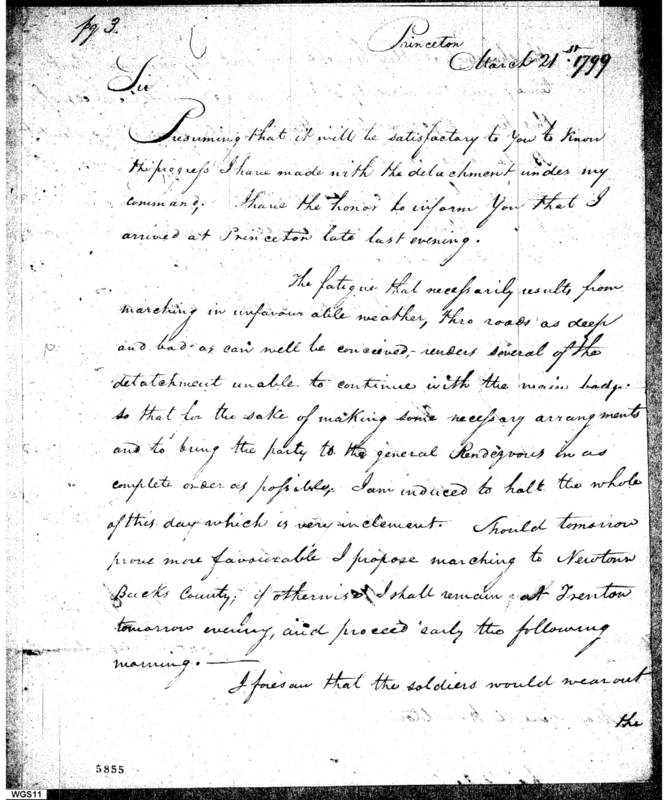 pg 3.
Princeton
March 21st. 1799
Sir
Presuming that it will be satisfactory to You to know
the progress I have made with the detachment under my
command; I have the honor to inform You that I
arrived at Princeton late last evening.
The fatigue that necessarily results from
marching in unfavourable weather, thro roads as deep
and bad as can well be conceived, renders several of the
detatchment unable to continue with the main body.
so that for the sake of making some necessary arrangments
and to bring the party to the general Rendezvous in as
complete order as possible, I am induced to halt the whole
of this day which is very inclement. Should tomorrow
prove more favourable I propose marching to Newtown
Bucks County; if otherwise I shall remain at Trenton
tomorrow evening, and proceed early the following
morning. —
I foresaw that the soldiers would wear out
the
5855
WGS11